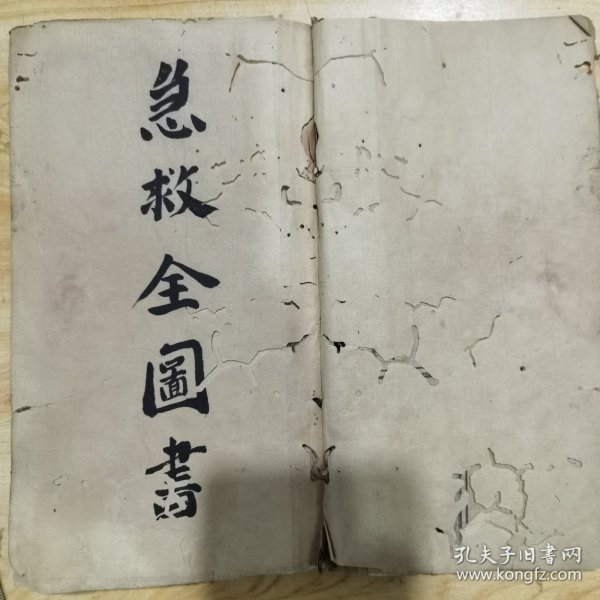 急救全圖書
孔夫子旧書网
www.kongfz.com